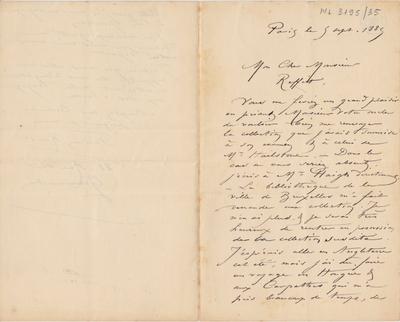 ML 3195/35
Paris le 5 sept. 1889
Mon Cher Monsieur
Vous me feriez un grand plaisir
en priant Monsieur votre
de vouloir bien me renvoyer
la collection que j'avais soumise
à son examen & à celui de
Mr . – Dans le
cas où vous seriez absent,
j'écris à Mr Haigh
– La bibliothèque de la
ville de Bruxelles m'a fait
demander une collection. Je
n'en ai plus & je serais très
heureux de rentrer en possession
de la collection susdite.
J'espérais aller en Angleterre
cet été, mais j'ai dû faire
un voyage en Hongrie &
aux Carpathes qui m'a
pris beaucoup de temps, de